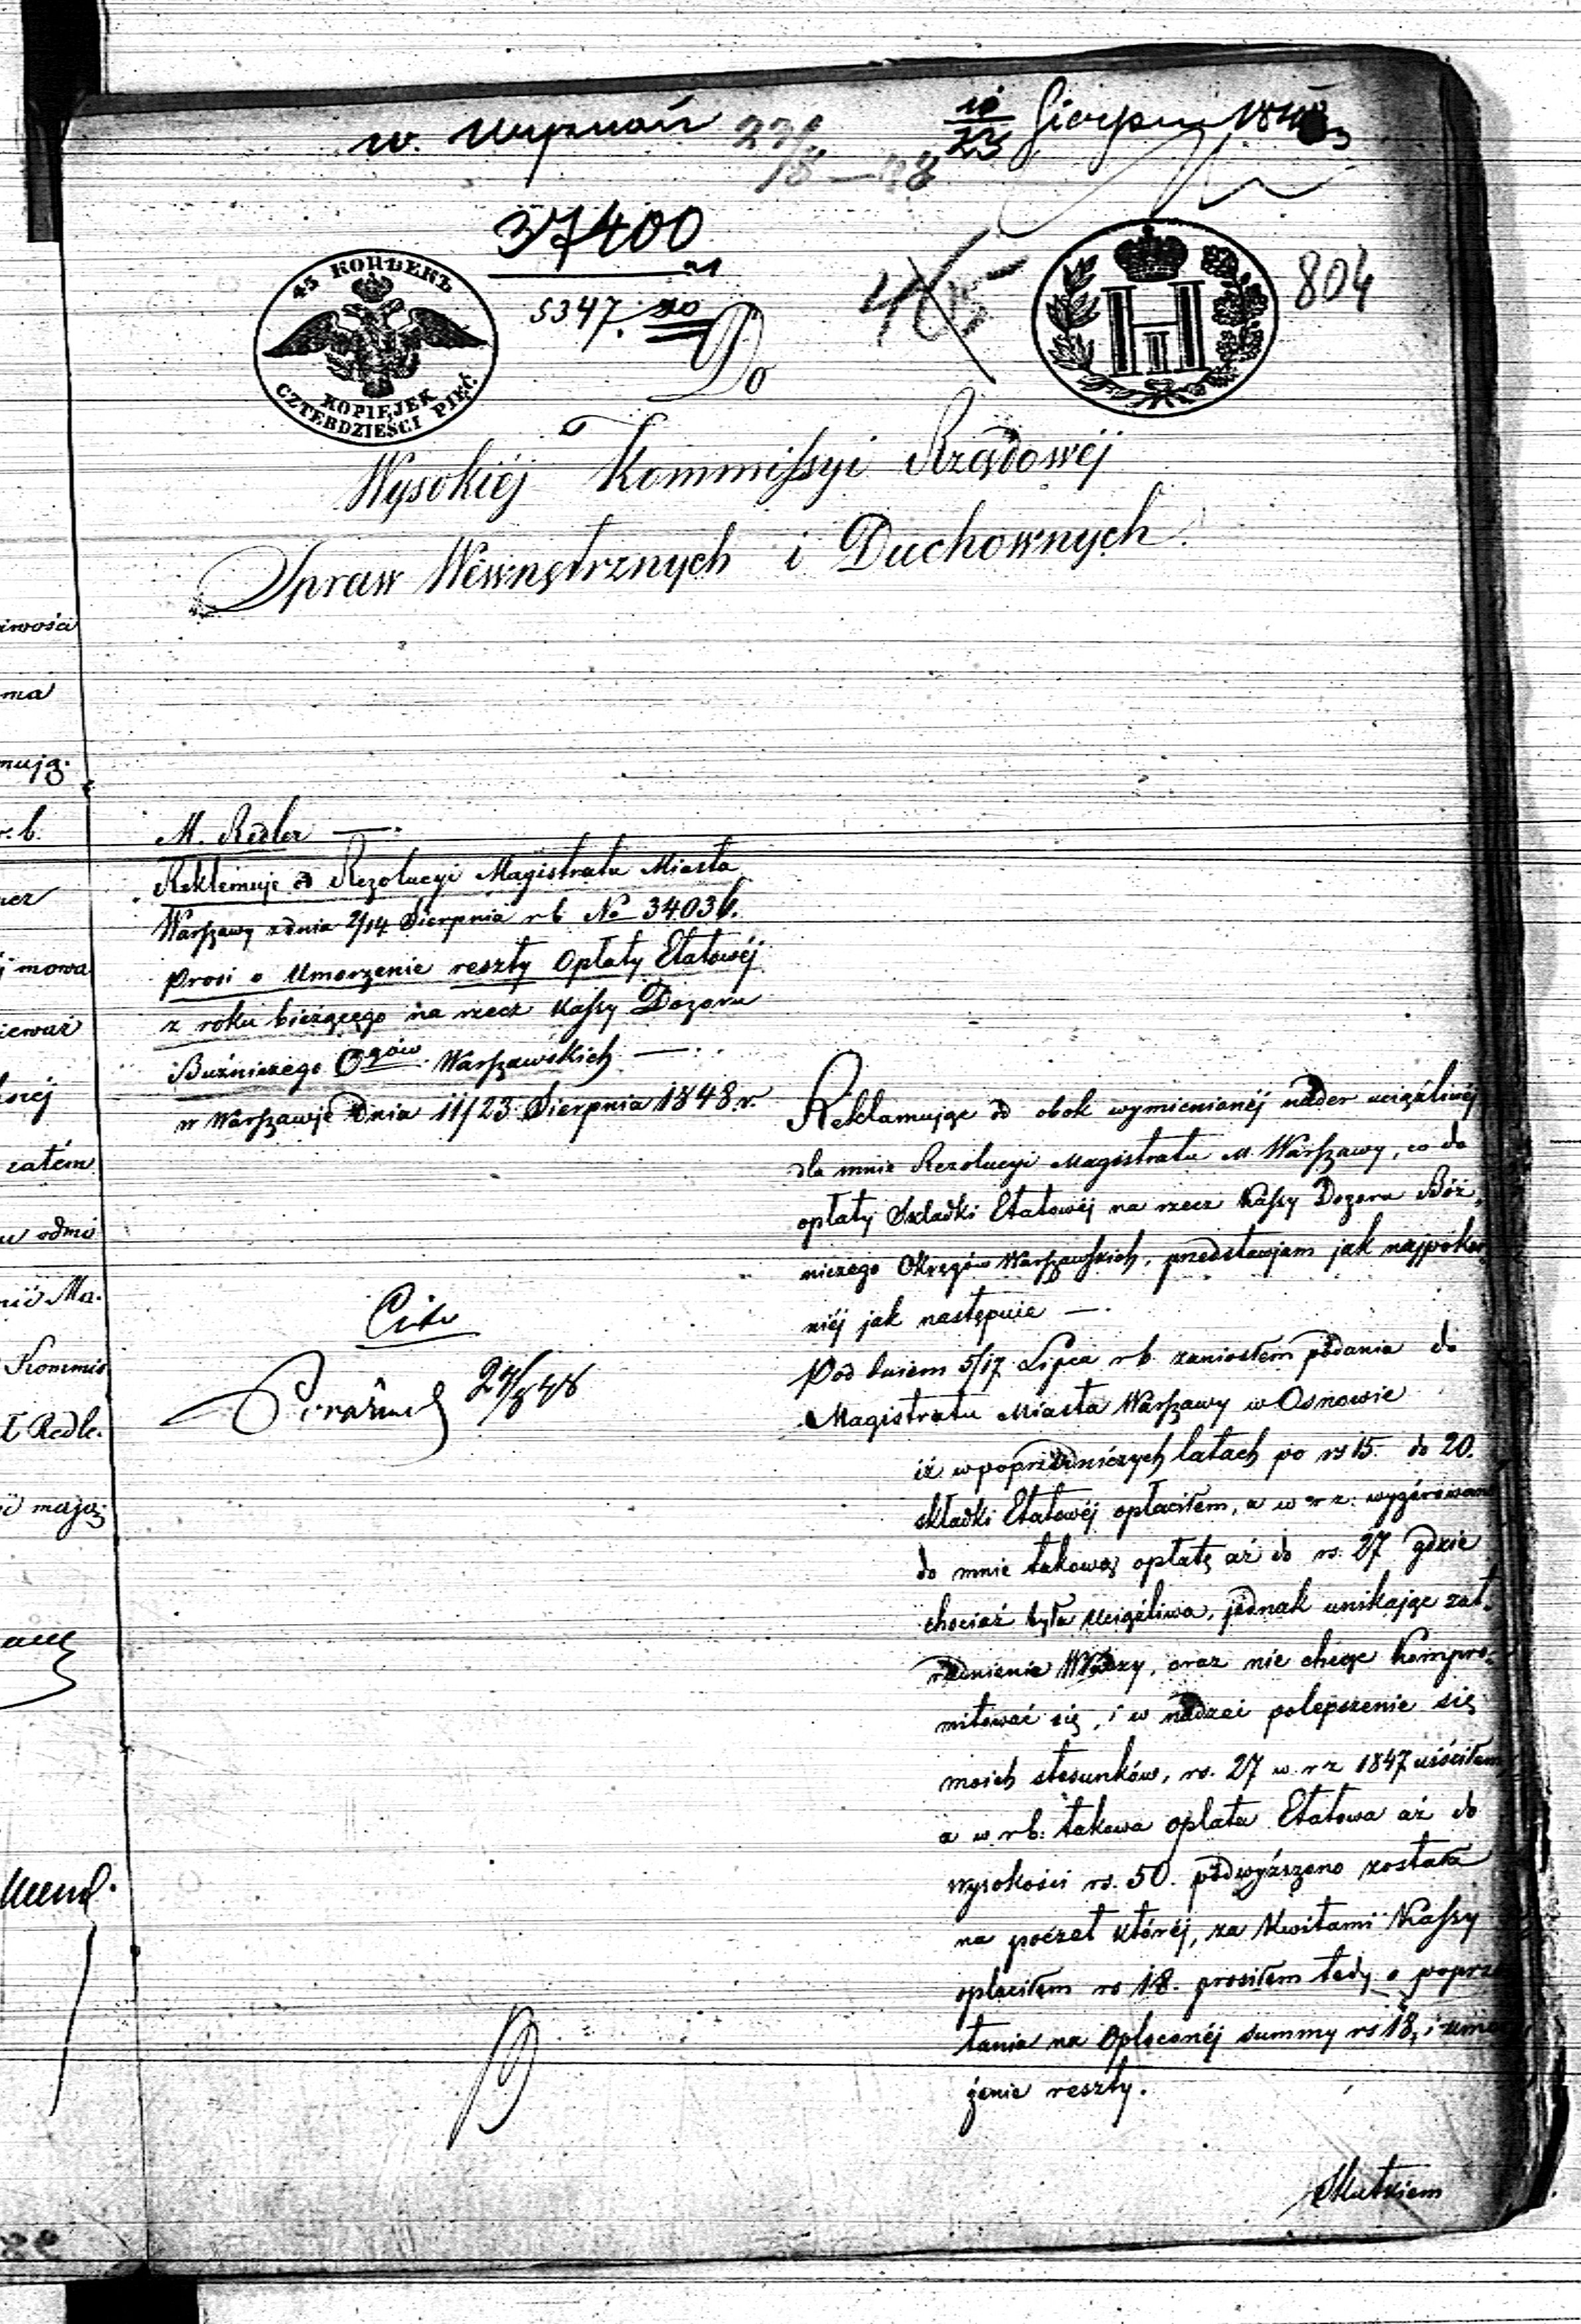 w. Wyznań
11/23 Sierpn 1848
37400
5347.
804
45 КОПѢЕКЪ
KOPIEJEK
CZTERDZIEŚCI PIĘĆ
Do
Wysokiéj Kommissyi Rządowéj
Spraw Wewnętrznych i Duchownych.
M. Redler —.
Reklamuje od Rezolucyi Magistratu Miasta
Warszawy z dnia 2/14 Sierpnia r b No 34036.
prosi o Umorzenie reszty Opłaty Etatowéj
z roku bieżącego na rzecz Kassy Dozoru
Bużniczego Ogów Warszawskich —.
w Warszawie Dnia 11/23 Sierpnia 1848 r.
Reklamując od obok wymienionéj nader uciążliwéj
dla mnie Rezolucyi Magistratu M. Warszawy, co do
opłaty Składki Etatowéj na rzecz Kassy Dozoru Bóż,
niczego Okręgów Warszawskich, przedstawjam jak najpokor
niéj jak następuie —.
Pod dniem 5/17 Lipca r b. zaniosłem podania do
Magistratu Miasta Warszawy w Osnowie
iż w poprzedniczych latach po rs 15. do 20.
składki Etatowéj opłaciłem, a w r z: wygórowano
do mnie takową opłatę aż do rs. 27 gdzie
chociaż była uciążliwa, jednak unikając zat.
rudnienie Władzy, oraz nie chcąc kompro.
mitować się, i w nadzei polepszenie się
moich stosunków, rs. 27 w r z 1847 uiściłem,
a w r b: takowa opłata Etatowa aż do
wysokości rs. 50. podwyższono została
na poczet któréj, za Kwitami Kassy
opłaciłem rs 18. prosiłem tedy o poprze
tania na Opłaconéj summy rs 18, i umo
żenie reszty.
Cito
27/8 48
Skutkiem